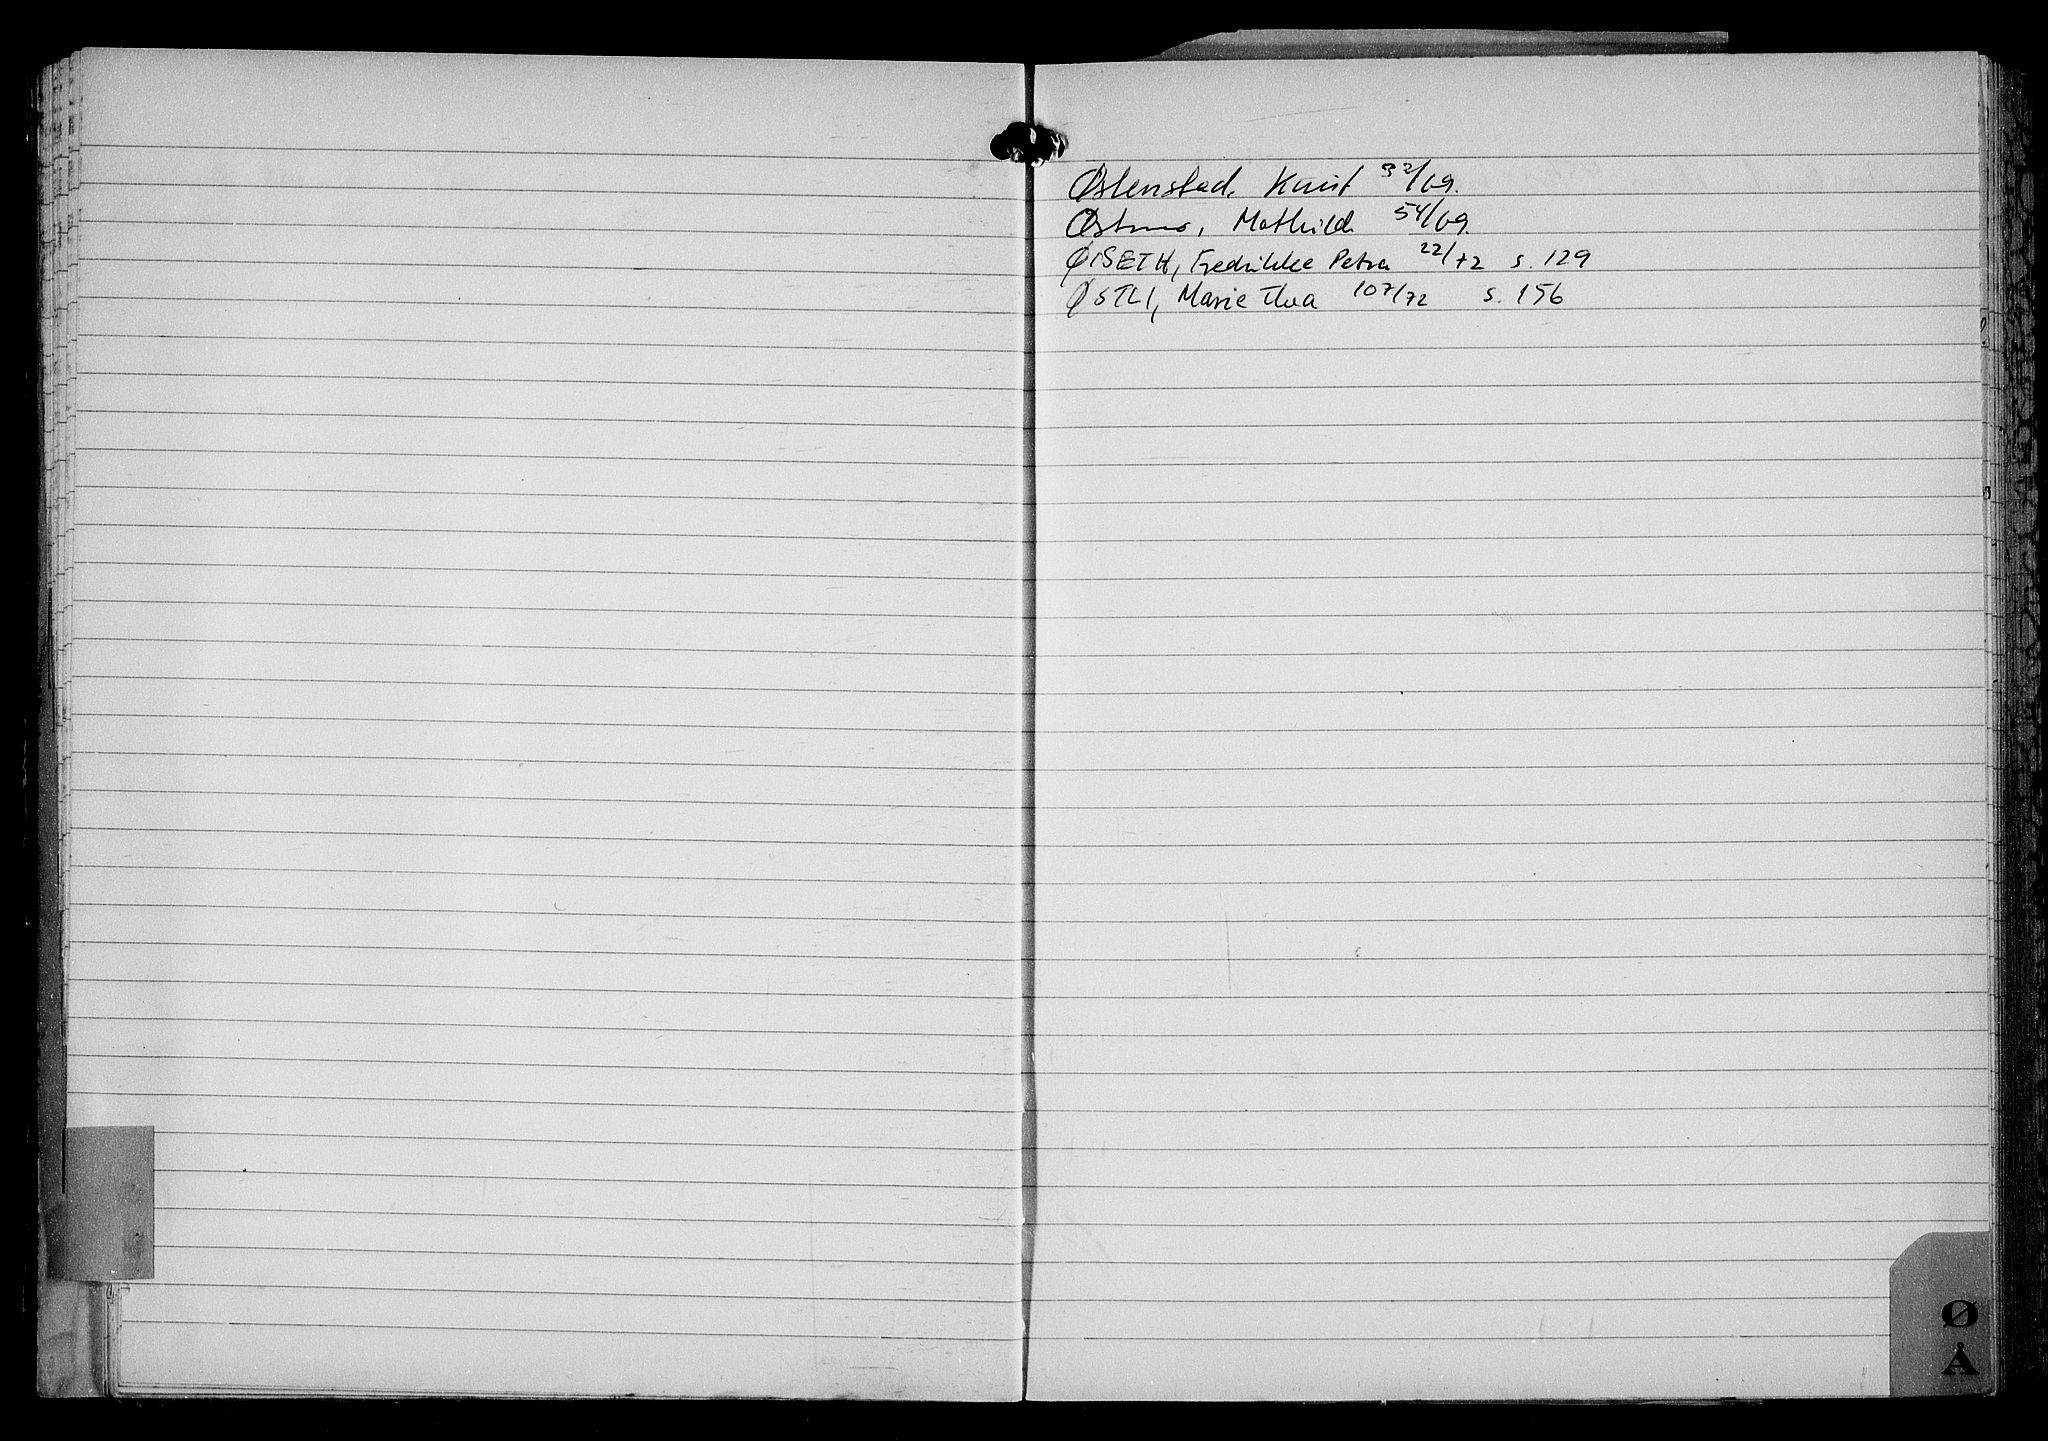 Østenstad, Knut 32/69.
Østmo, Mathilde 54/69.
ØISETH, Fredrikke Petra 22/72 s. 129
ØSTLI, Marie Thea 107/72 s. 156
Ø
Å